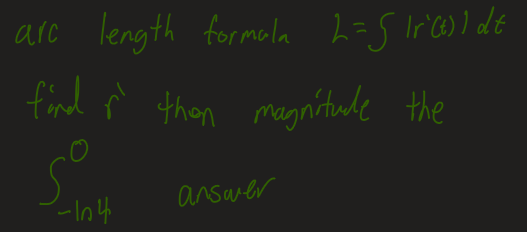 arc length formula L=∫ |r'(t)| dt
find r' then magnitude the
∫_{-ln4}^{0} answer